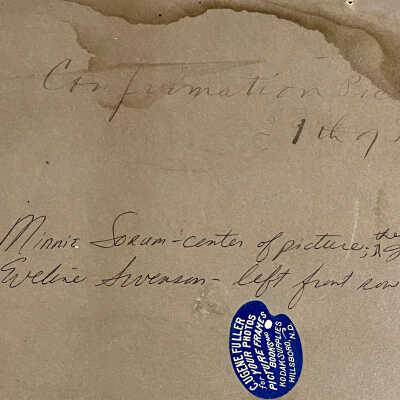 Confirmation Pic
1th of
Minnie Sorum - center of picture; the
Eveline Swenson - left front row
EUGENE FULLER
for YOUR PHOTOS
PICTURE FRAMES
BOOKS AND
KODAK SUPPLIES
HILLSBORO, N.D.